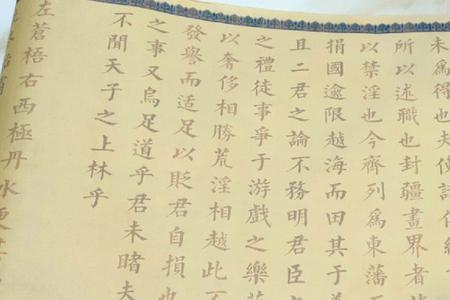 未為得也夫使諸侯
所以述職也封疆畫界者
以禁淫也今齊列為東藩
捐國逾限越海而田其于義
且二君之論不務明君臣
之禮徒事爭于游戲之樂苑
以奢侈相勝荒淫相越此不
發譽而适足以貶君自損也
之事又烏足道乎君未睹夫
不聞天子之上林乎
左蒼梧右西極丹水更其